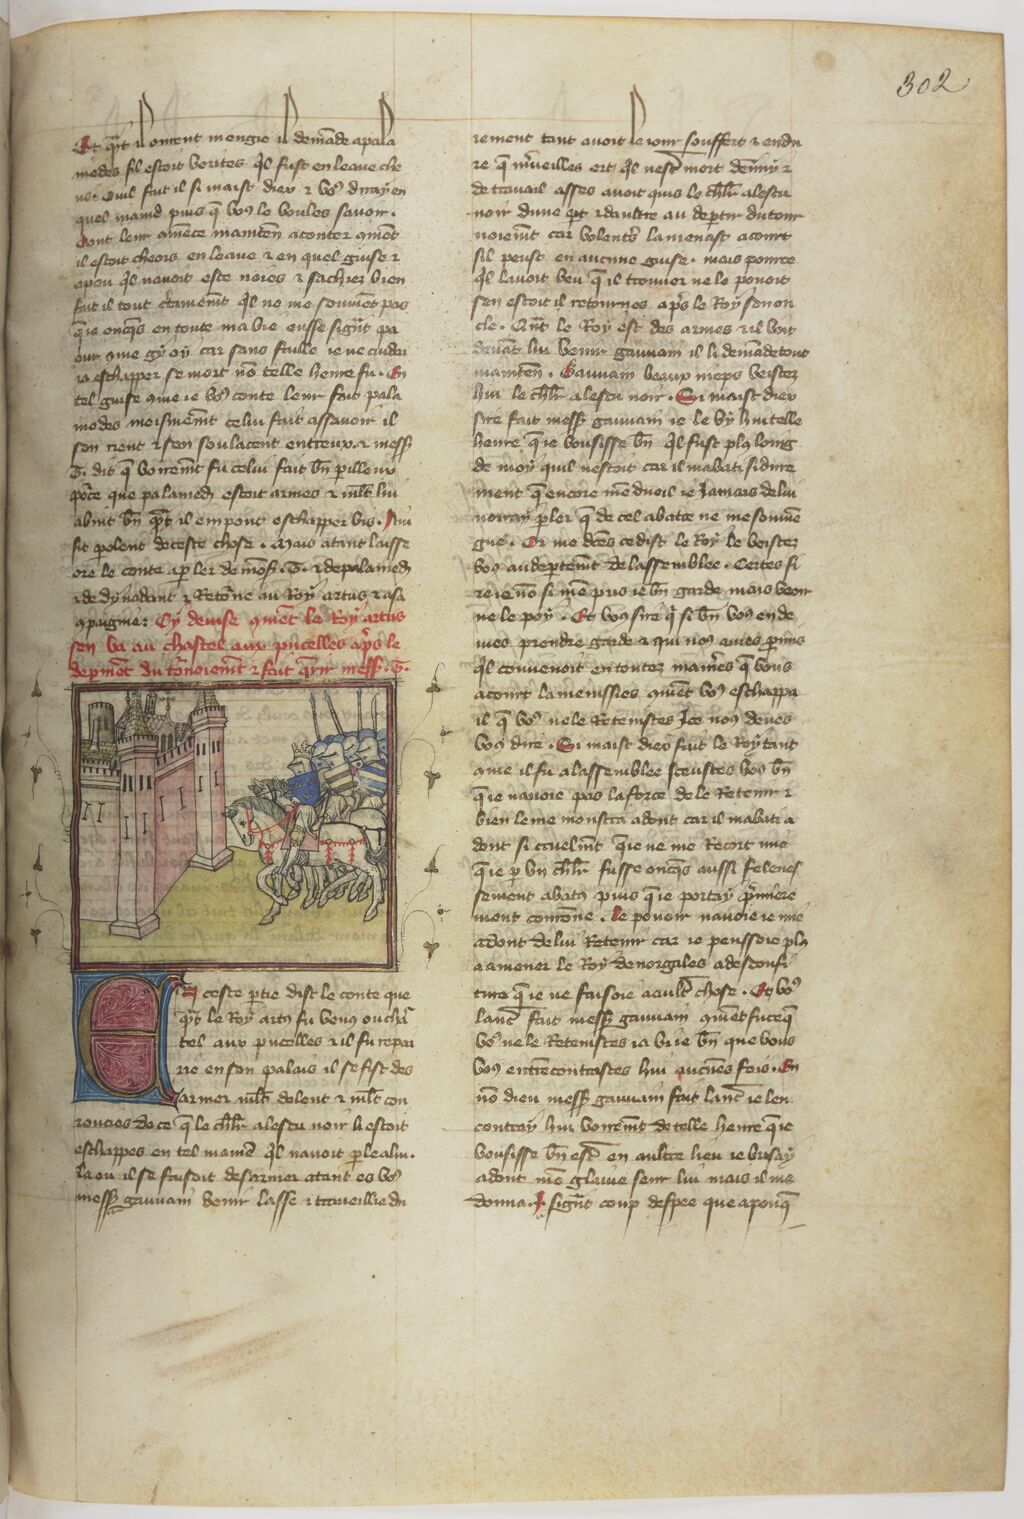 302
Et qu̅t il orent mengie il dema̅de a pala
medes sil estoit verites q̅l fust en leaue che
us. Ouil fait il si maist diex & vo9 diray en
quel mani̅e puis q̅ vo9 le voules savoir.
Dont leur co̅mence mainten̅ a conter co̅me̅t
il estoit cheois en leaue & en quel guise &
a peu q̅l navoit este noies & sachiez bien
fait il tout certainem̅t q̅l ne me souvie̅t pas
q̅ ie onq̅s en toute ma vie eusse si gra̅t pa
our co̅me gy oy car sans faille ie ne cuiday
ia eschapper se mort no̅ telle heure fu. En
tel guise co̅me ie vo9 conte leur fait pala
medes meismem̅t celui fait assavoir il
sen rient & sen soulacent entreux. & mess̅
G. dit q̅ voirem̅t fu celui fait bn̅ perilleux
po̅rce que palamed̅ estoit armes & mlt̅ lui
avint bn̅ qu̅t il em pout eschapper vis. Ain
sit polent de ceste chose. Mais atant laisse
ore le conte a p̅ler de mo̅s̅. G. & de palamed̅
& de dynadant & reto̅ne au Roy artus & a sa
co̅paignie: Cy devise co̅me̅t le Roy artus
sen va au chastel aux pucelles ap̅s le
depme̅t du to̅noiem̅t & fait q̅rir mess̅. G.
En ceste p̅tie dist le conte que
qu̅t le Roy art9 fu venus ou chas̅
tel aux pucelles & il fu repai
rie en son palais il se fist des
armer mlt̅ dolent & mlt̅ cou
roucies de ce q̅ le chl̅r a lescu noir li estoit
eschappes en tel mani̅e q̅l navoit p̅le a lui.
La ou il se faisoit desarmer atant es vo9
mess̅ gauvain venir lasse & traveillie du
rement tant avoit le iour souffert & endu
re q̅ m̅veilles ert q̅l nest mort de̅nuy &
de travail asses avoit quis le chl̅r a lescu
noir dune p̅t & daultre au dep̅tir du tour
noiem̅t car volent̅s lamenast a court
sil peust en aucune guise. mais pource
q̅l lavoit veu q̅ il trouver ne le povoit
sen estoit il retournes ap̅s le Roy son on
cle. Qu̅t le Roy est des armes & il voit
devant lui venir gauvain il li dema̅de tout
mainten̅. Gauvain beaux nieps veistez
hui le chl̅r a lescu noir. Si maist diex
sire fait mess̅ gauvain ie le vy hui telle
heure q̅ ie vousisse bn̅ q̅l fust pl9 loing
de moy quil nestoit car il mabati si dure
ment q̅ encore me̅ dueil ie Jamais de lui
norray p̅ler q̅ de cel abatre ne me souvie̅
gne. Or me d̅es ce dist le Roy le veistez
vo9 au dep̅tem̅t de lassemblee. Certes si
re ie no̅ si me̅ pris ie bn̅ garde mais veoir
ne le poy. Et vo9 sire q̅ si bn̅ vo9 en de
vies prendre garde & qui no9 avies p̅mis
q̅l convenoit en toutez mani̅es q̅ vous
a court lamenissies co̅me̅t vo9 eschappa
il q̅ vo9 ne le retenistes Jce no9 deves
vo9 dire. Si maist diex fait le Roy tant
co̅me il fu a lassemblee sceustes vo9 bn̅
q̅ ie navoie pas la force de le retenir &
bien le me monstra adont car il mabati a
dont si cruelm̅t q̅ ie ne me recort mie
q̅ ie p̅ un chl̅r fusse onq̅s aussi felenes
sement abatus puis q̅ ie portay p̅miere
ment couro̅ne. Le povoir navoie ie mie
adont de lui retenir car ie penssoie pl9
a amener le Roy de norgales a desconfi
ture q̅ ie ne faisoie a ault̅ chose. Et vo9
lanc̅ fait mess̅ gauvain co̅me̅t fu ce q̅
vo9 ne le retenistes ia vi ie bn̅ que vous
vo9 entrencontrastes hui aucu̅es fois. En
no̅ dieu mess̅ gauvain fait lanc̅ ie len
contray hui voirem̅t de telle heure q̅ ie
vousisse bn̅ est̅ en aultre lieu ie brisay
adont mo̅ glaive seur lui mais il me
donna .I. si gra̅t coup despee que a pou q̅